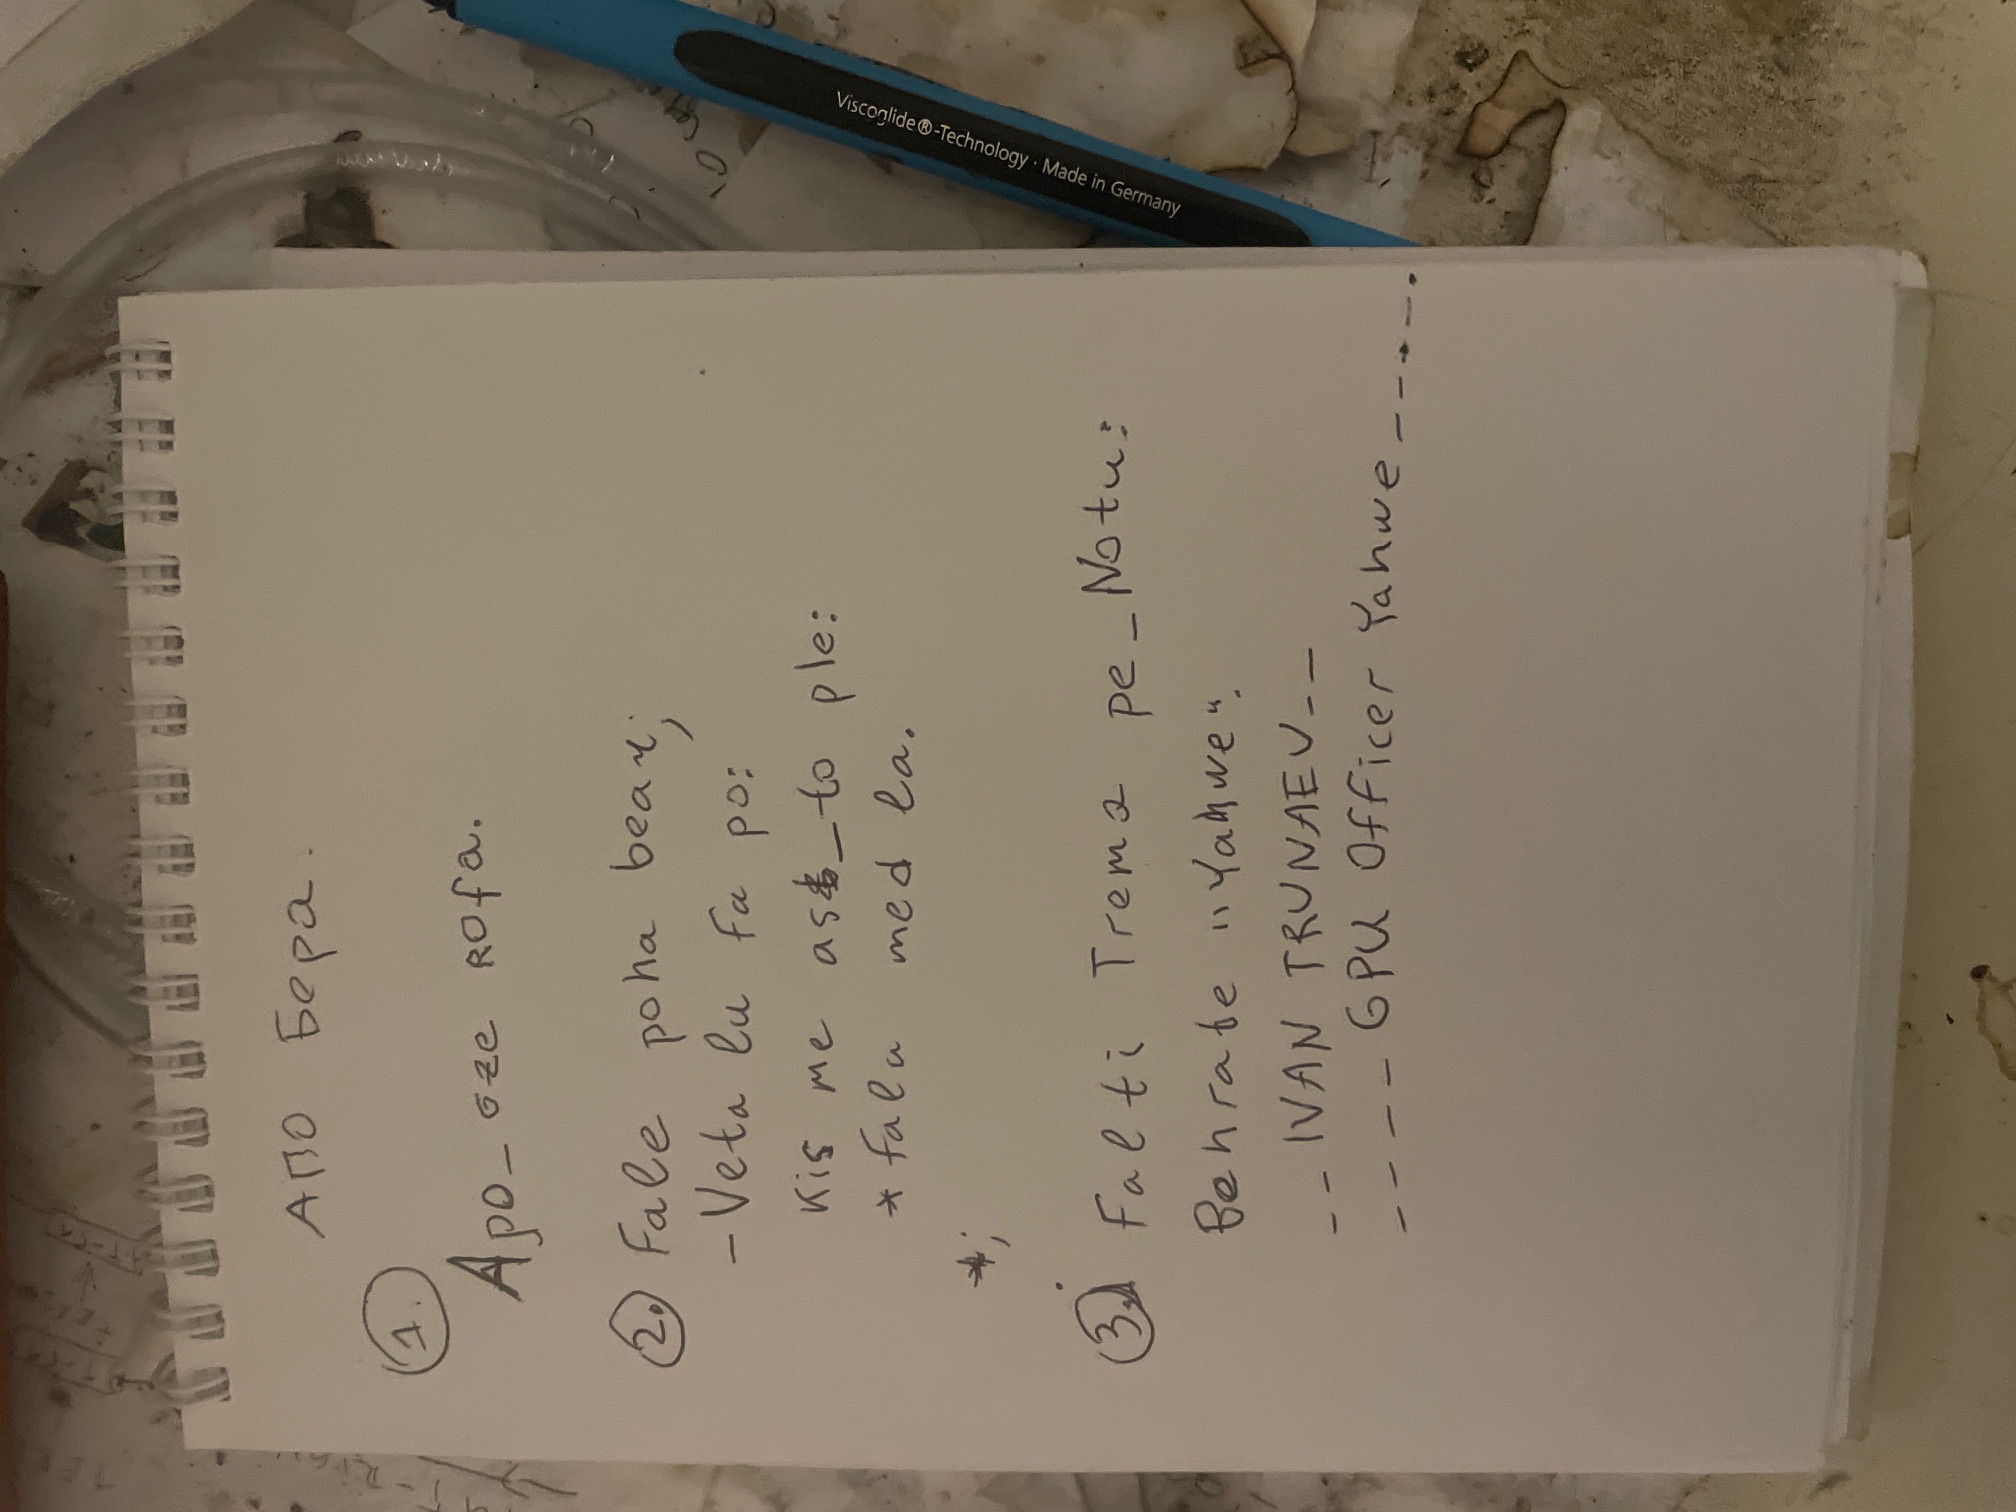 АПО Бера.
1.
Apo_ gze rofa.
2. Fale poha beax;
- Veta lu fa po:
Kis me ass_to ple:
* falu med la.
*;
3. Falti Trema pe_Notu:
Behrate "Yahwe".
__IVAN TRUNAEV__
____GPU Officer Yahwe_____.
Viscoglide®-Technology · Made in Germany